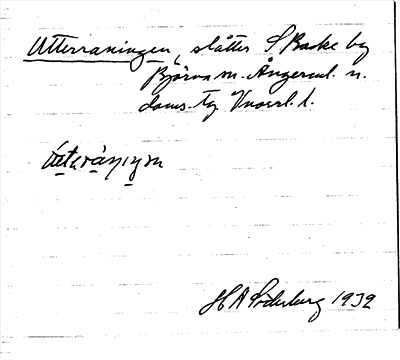 Utterraningen, slåtter S Baske by
Björna sn. Ångerml. n.
doms. tg Vnorrl. l.
H A Söderberg 1932